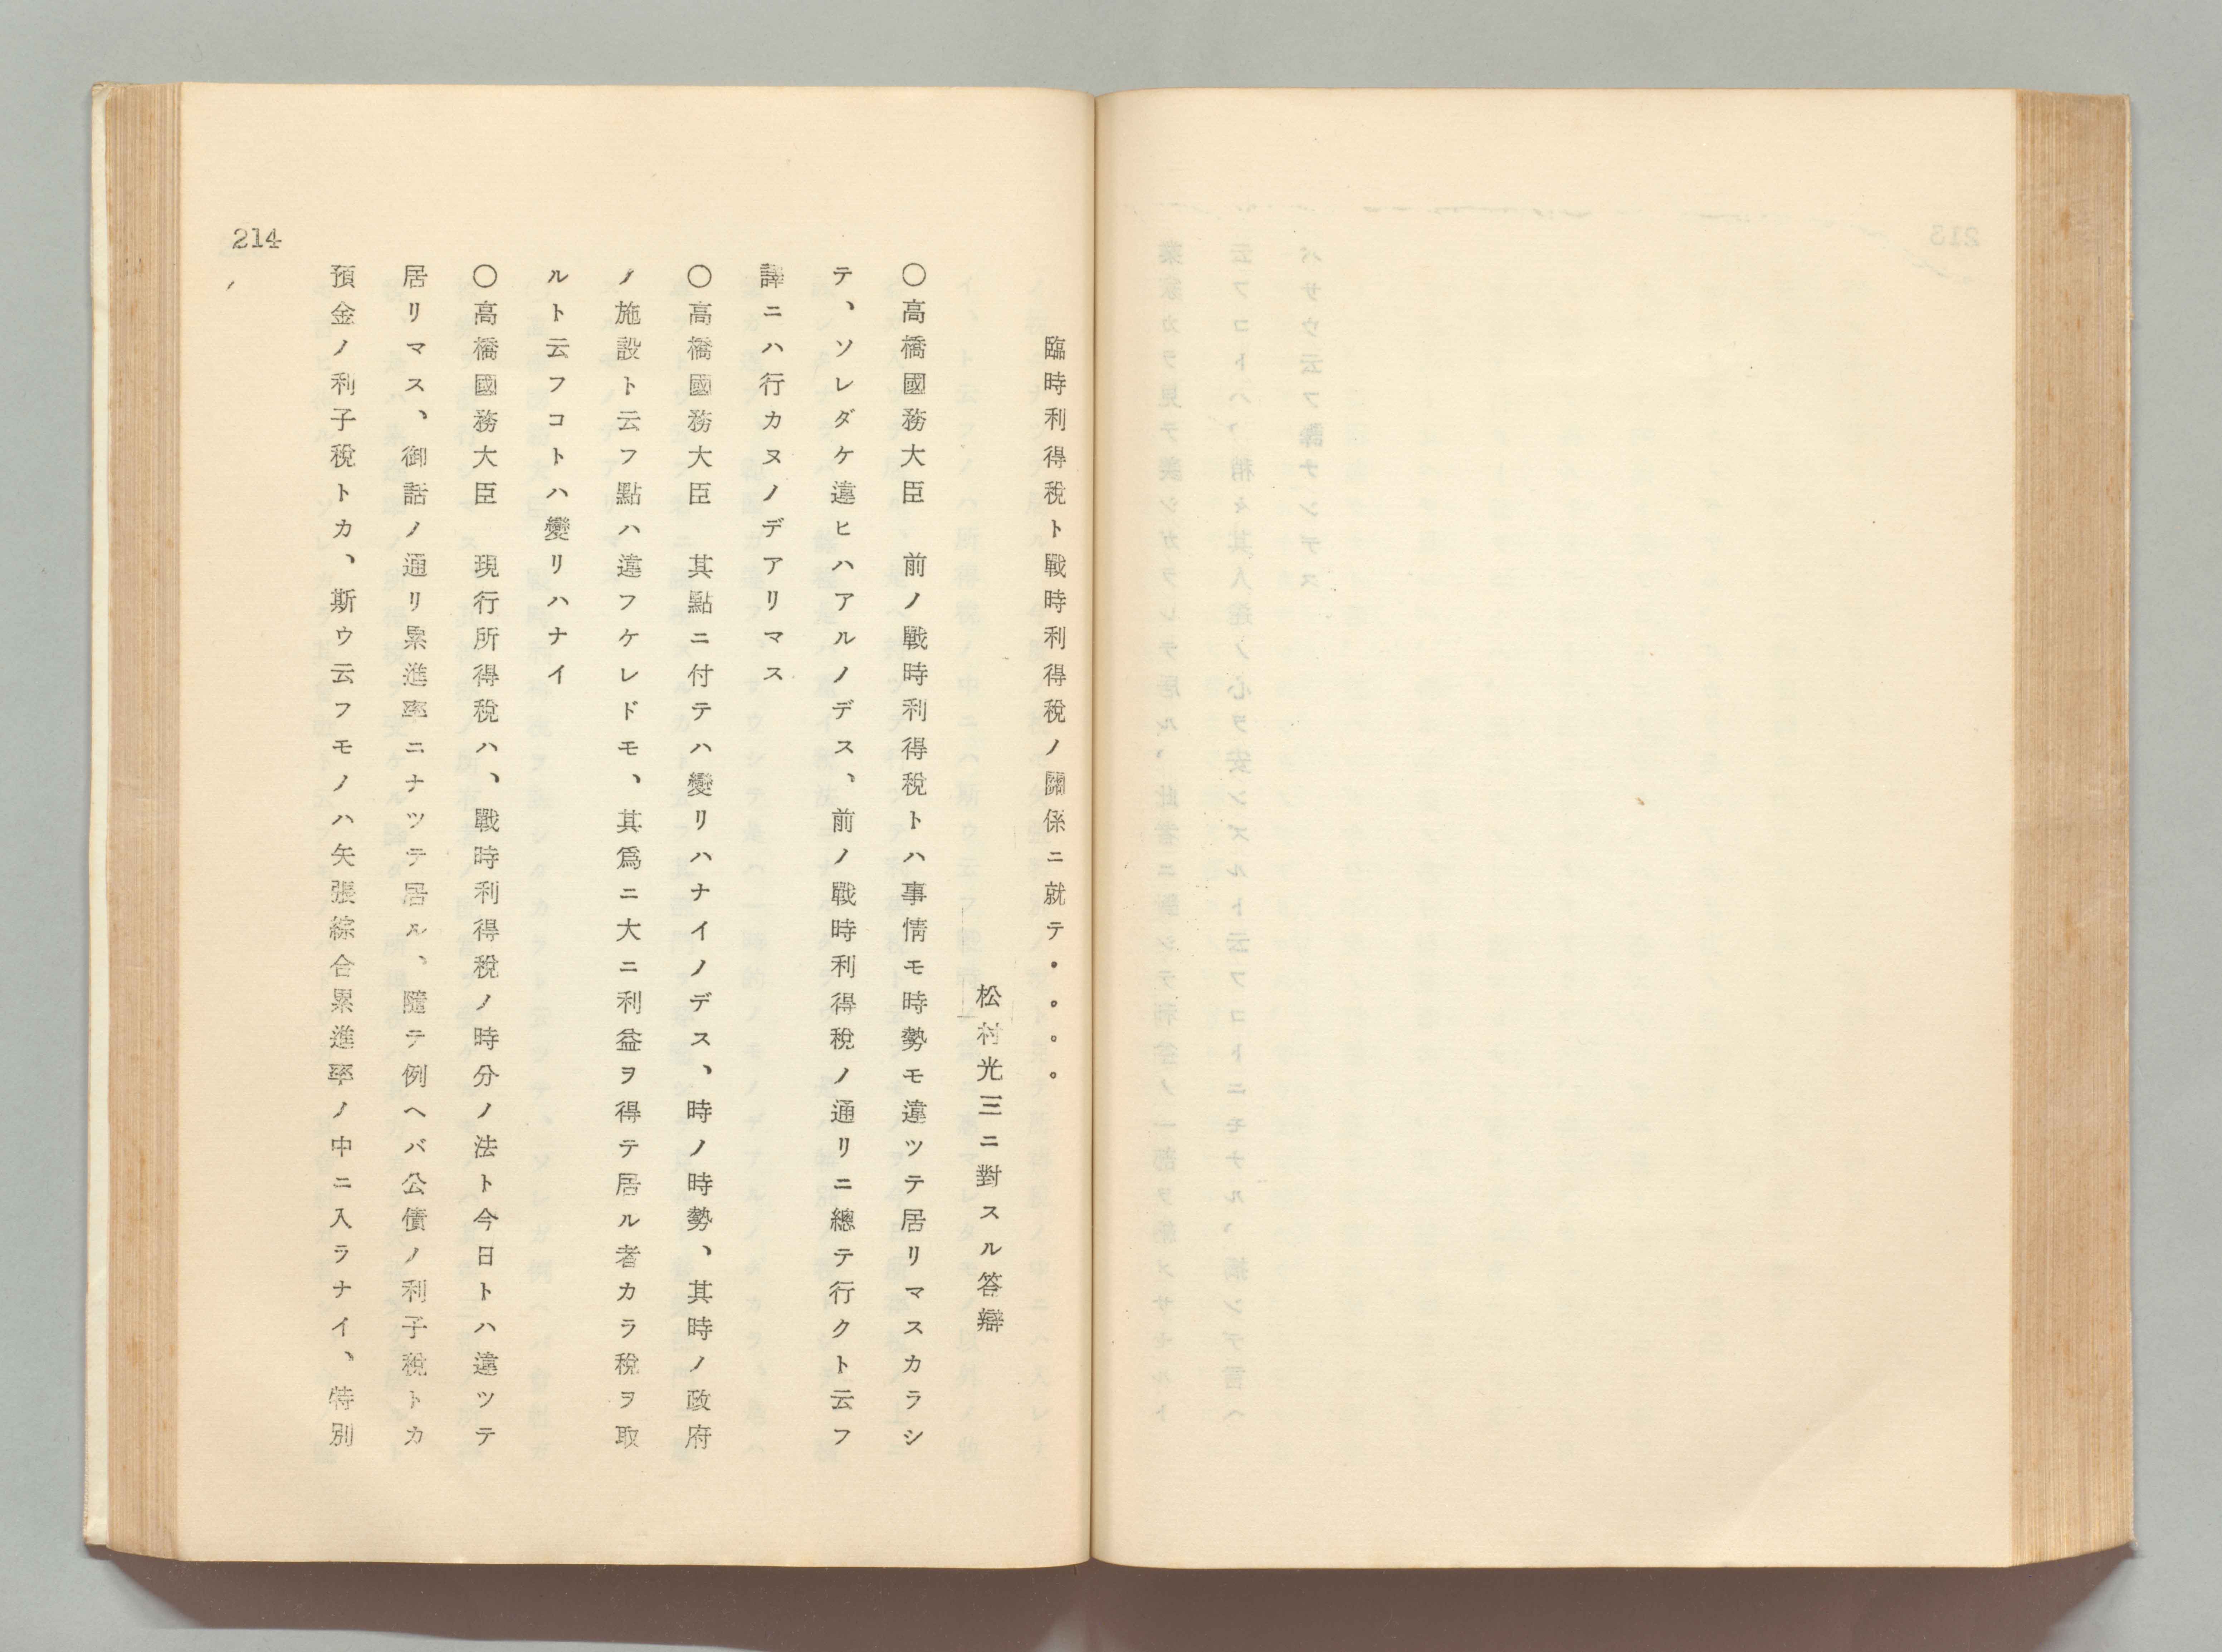 臨時利得稅ト戰時利得稅ノ關係ニ就テ。。。。
松村光三ニ對スル答辯
〇高橋國務大臣　前ノ戰時利得稅トハ事情モ時勢モ違ツテ居リマスカラシ
テ、ソレダケ違ヒハアルノデス、前ノ戰時利得稅ノ通リニ總テ行クト云フ
譯ニハ行カヌノデアリマス
〇高橋國務大臣　其點ニ付テハ變リハナイノデス、時ノ時勢、其時ノ政府
ノ施設ト云フ點ハ違フケレドモ、其爲ニ大ニ利益ヲ得テ居ル者カラ稅ヲ取
ルト云フコトハ變リハナイ
〇高橋國務大臣　現行所得稅ハ、戰時利得稅ノ時分ノ法ト今日トハ違ツテ
居リマス、御話ノ通リ累進率ニナツテ居ル、隨テ例ヘバ公債ノ利子稅トカ
預金ノ利子稅トカ、斯ウ云フモノハ矢張綜合累進率ノ中ニ入ラナイ、特別
214